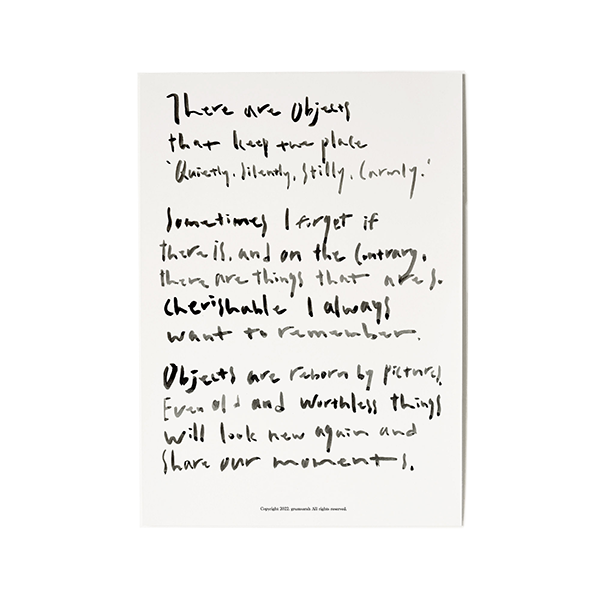 There are objects
that keep the place
'Quietly. Silently. Stilly. Carmly.'
Sometimes I forget if
there is. and on the Contrary.
there are things that are s.
Cherishable I always
want to remember.
Objects are reborn by pictures.
Even old and worthless things
will look new again and
share our moments.
Copyright 2022. All rights reserved.